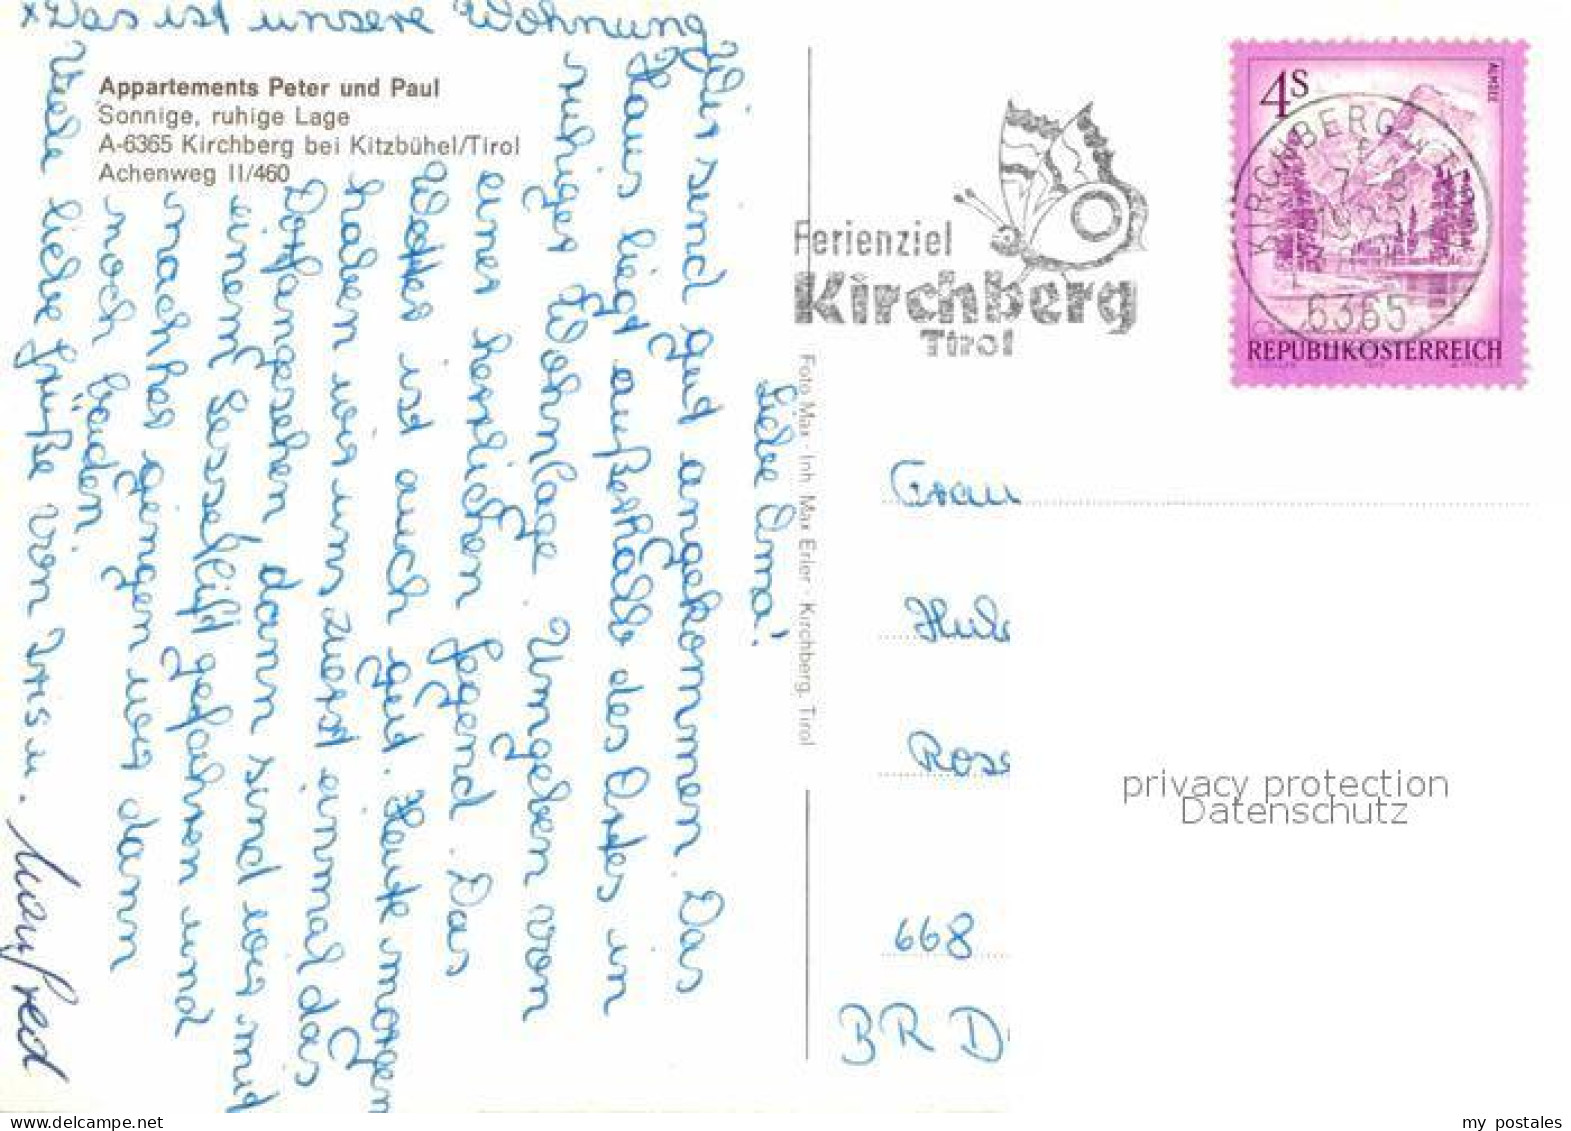 x Das ist unsere Wohnung
Appartements Peter und Paul
Sonnige, ruhige Lage
A-6365 Kirchberg bei Kitzbühel/Tirol
Achenweg II/460
Liebe Oma!
Wir sind gut angekommen. Das
Haus liegt außerhalb des Ortes in
ruhiger Wohnlage. Umgeben von
einer herrlichen Gegend. Das
Wetter ist auch gut. Heute morgen
haben wir uns zuerst einmal das
Dorf angesehen dann sind wir mit
einem Sessellift gefahren und
nachher gingen wir dann
noch baden.
Viele liebe Grüße von Iris u.
Manfred
Foto Max · Inh. Max Erler · Kirchberg, Tirol
Ferienziel
Kirchberg
Tirol
4S
ALMSEE
KIRCHBERG IN TIROL
6365
REPUBLIK ÖSTERREICH
Frau
Hub
Rose
668
BRD
privacy protection
Datenschutz
my_postales